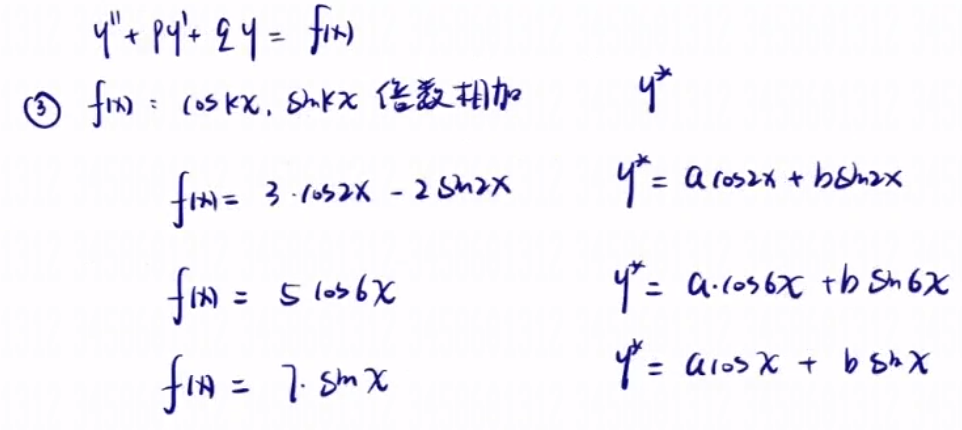 y''+ py'+ qy = f(x)
③ f(x) = cos kx, sin kx 倍数相加 y*
f(x) = 3·cos2x - 2 sin2x y* = a cos2x + b sin2x
f(x) = 5 cos6x y* = a·cos6x + b sin6x
f(x) = 7·sin x y* = a cos x + b sin x